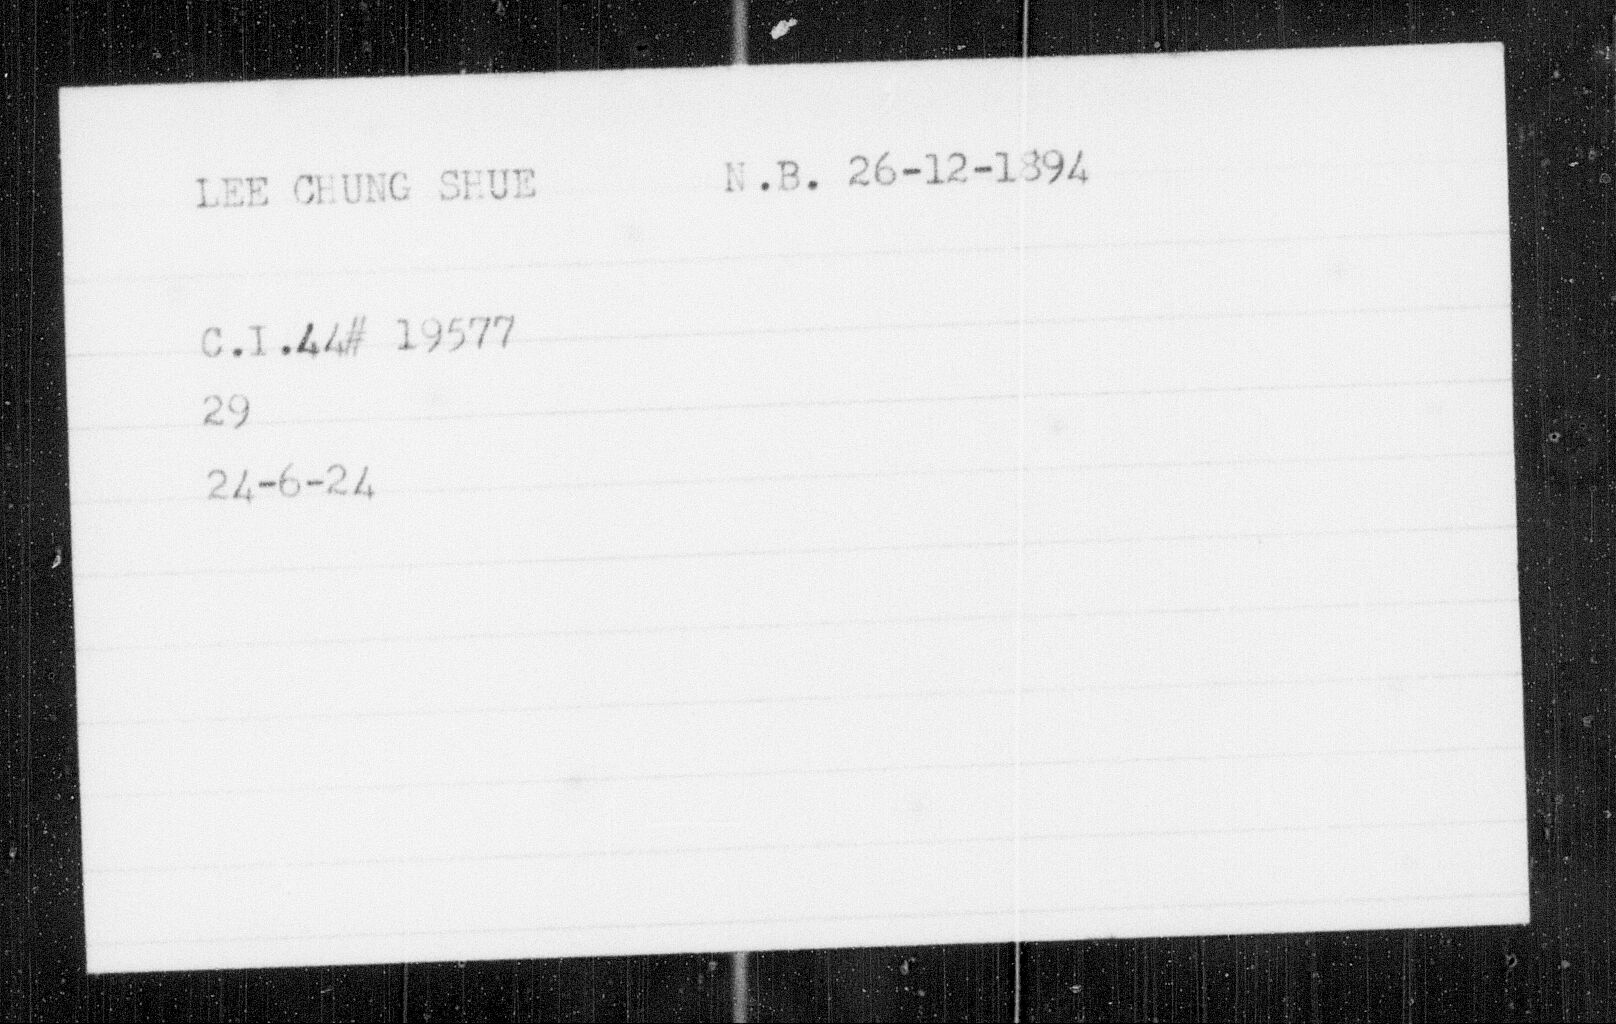 LEE CHUNG SHUE N.B. 26-12-1894
C.I.44# 19577
29
24-6-24